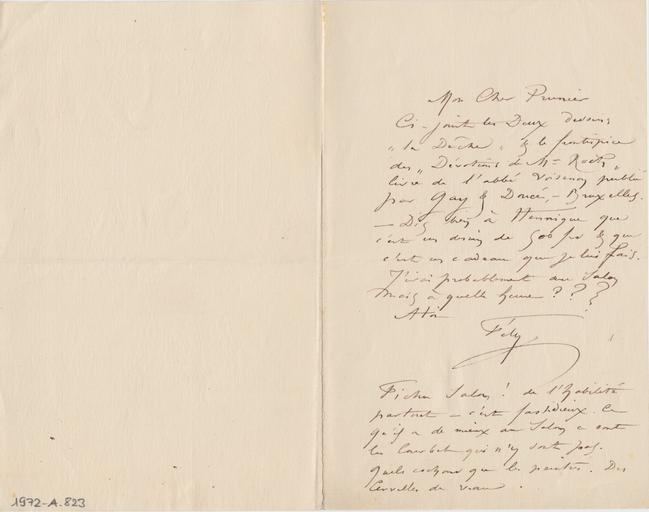 Mon Cher Prunier
Ci-joint les Deux dessins
„ la Dèche „ & le frontispice
des „ Dévotions de Mme Roch „
livre de l'abbé Voisenon publié
par Gay & Doucé, – Bruxelles.
— Dis bien à Hennique que
c'est un dessin de 500 frs & que
c'est un cadeau que je lui fais.
J'irai probablement au Salon
Mais à quelle heure ? ? ?
A toi
Fély
Fichu Salon ! de l'habilité
partout – c'est fastidieux. Ce
qu'il a de mieux au Salon ce sont
les Courbet qui n'y sont pas.
Quels cochons que les peintres. Des
Cervelles de veau .
1972-A.823